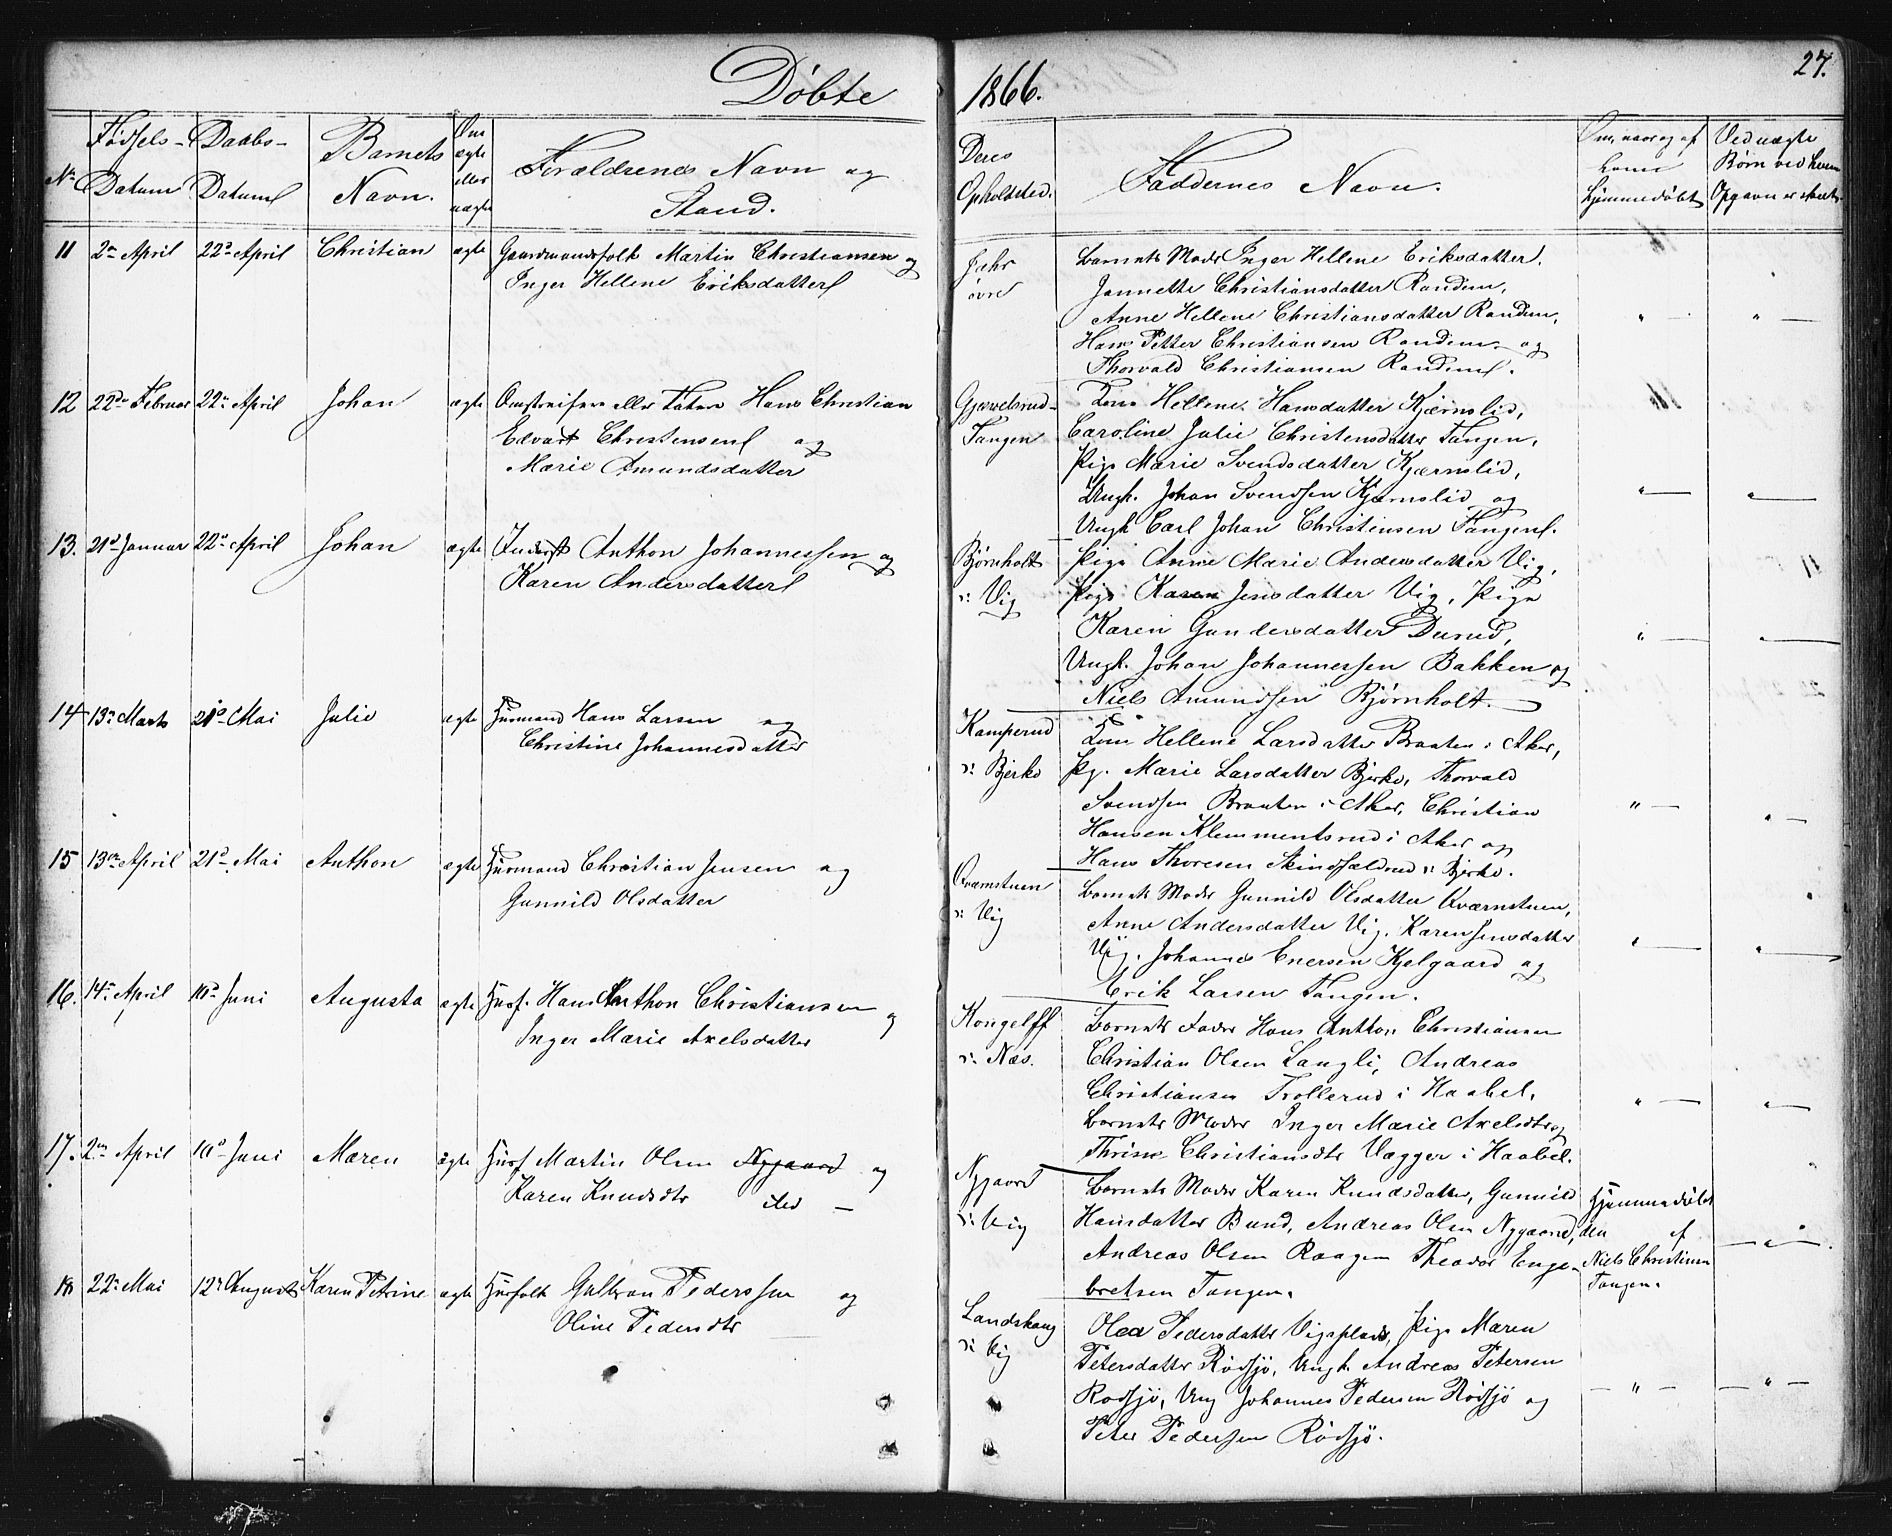 Døbte 1866. 27.
No Fødsels-Datum Daabs-Datum Barnets Navn. Om ægte eller uægte Forældrenes Navn og Stand. Deres Opholdsted. Faddernes Navn. Om, naar og af hvem hjemmedøbt Ved uægte Børn ved hvem Opgaven er skeet
11 2n April 22d April Christian ægte Gaardmandsfolk Martin Christiansen og
Inger Hellene Eriksdatter
øvre
Barnets Moder Inger Hellene Eriksdatter.
Jannette Christiansdatter Randem,
Anne Hellene Christiansdatter Randem,
Hans Petter Christiansen Randem og
Thorvald Christiansen Randem.
12 22de Februar 22n April Johan ægte Omstreifere eller Hans Christian
Edvart Christensen og
Marie Amundsdatter
Gjævelsrud-
Tangen
Kone Hellene Hansdatter Kjærnslid,
Caroline Julie Christensdatter Tangen,
Pige Marie Svendsdatter Kjærnslid,
Ungk. Johan Svendsen Kjærnslid og
Ungk Carl Johan Christensen Tangen.
13. 21d Januar 22d April Johan ægte Inderst Anthon Johannessen og
Karen Andersdatter
Bjørnholt
v: Vig
Pige Anne Marie Andersdatter Vig,
Pige Karen Jensdatter Vig, Pige
Karen Gundersdatter
Ungk. Johan Johannessen Bakken og
Niels Amundsen Bjørnholt.
14 13n Marts 21d Mai Julie ægte Husmand Hans Larsen og
Christine Johannesdatter
Kamperud
v: Bjerke
Kone Hellene Larsdatter Braaten i Aker,
Pg. Marie Larsdatter Bjerke, Thorvald
Svendsen Braaten i Aker, Christian
Hansen Klemmentsrud i Aker og
Hans Thoresen v: Bjerke.
15 13de April 21d Mai Anthon ægte Husmand Christian Jensen og
Gunnild Olsdatter
Qvernstuen
v: Vig
Barnets Moder Gunnild Olsdatter Kværnstuen,
Anne Andersdatter Vig, Karen Jensdatter
Vig, Johannes Enersen Kjelgaard og
Erik Larsen Tangen.
16. 14n April 10d Juni Augusta ægte Husf. Hans Anthon Christiansen og
Inger Marie Axelsdatter
Kongelff
v: Næs.
Barnets Fader Hans Anthon Christiansen
Christian Olsen Langli, Andreas
Christiansen Trollerud i Haabel.
Barnets Moder Inger Marie Axelsdtr og
Thrine Christiansdtr Vægger i Haabel.
17. 2n April 10d Juni Maren ægte Husf Martin Olsen Nygaard og
Karen Knudsdtr
Nygaard
v: Vig
Barnets Moder Karen Knudsdatter, Gunnild
Hansdatter Bund, Andreas Olsen Nygaard,
Andreas Olsen Raagen Theodor Enge-
bretsen Tangen.
Hjemmedøbt
den af
Niels Christiansen
Tangen.
18 22n Mai 12n August Karen Petrine ægte Husfolk Gulbran Pederssen og
Oline Pedersdtr
Landskaug
v: Vig
Olea Pedersdatter Vigsplads, Pige Maren
Petersdatter Rødsjø, Ungk. Andreas Petersen
Rødsjø, Ung Johannes Pedersen Rødsjø og
Peter Pedersen Rødsjø.